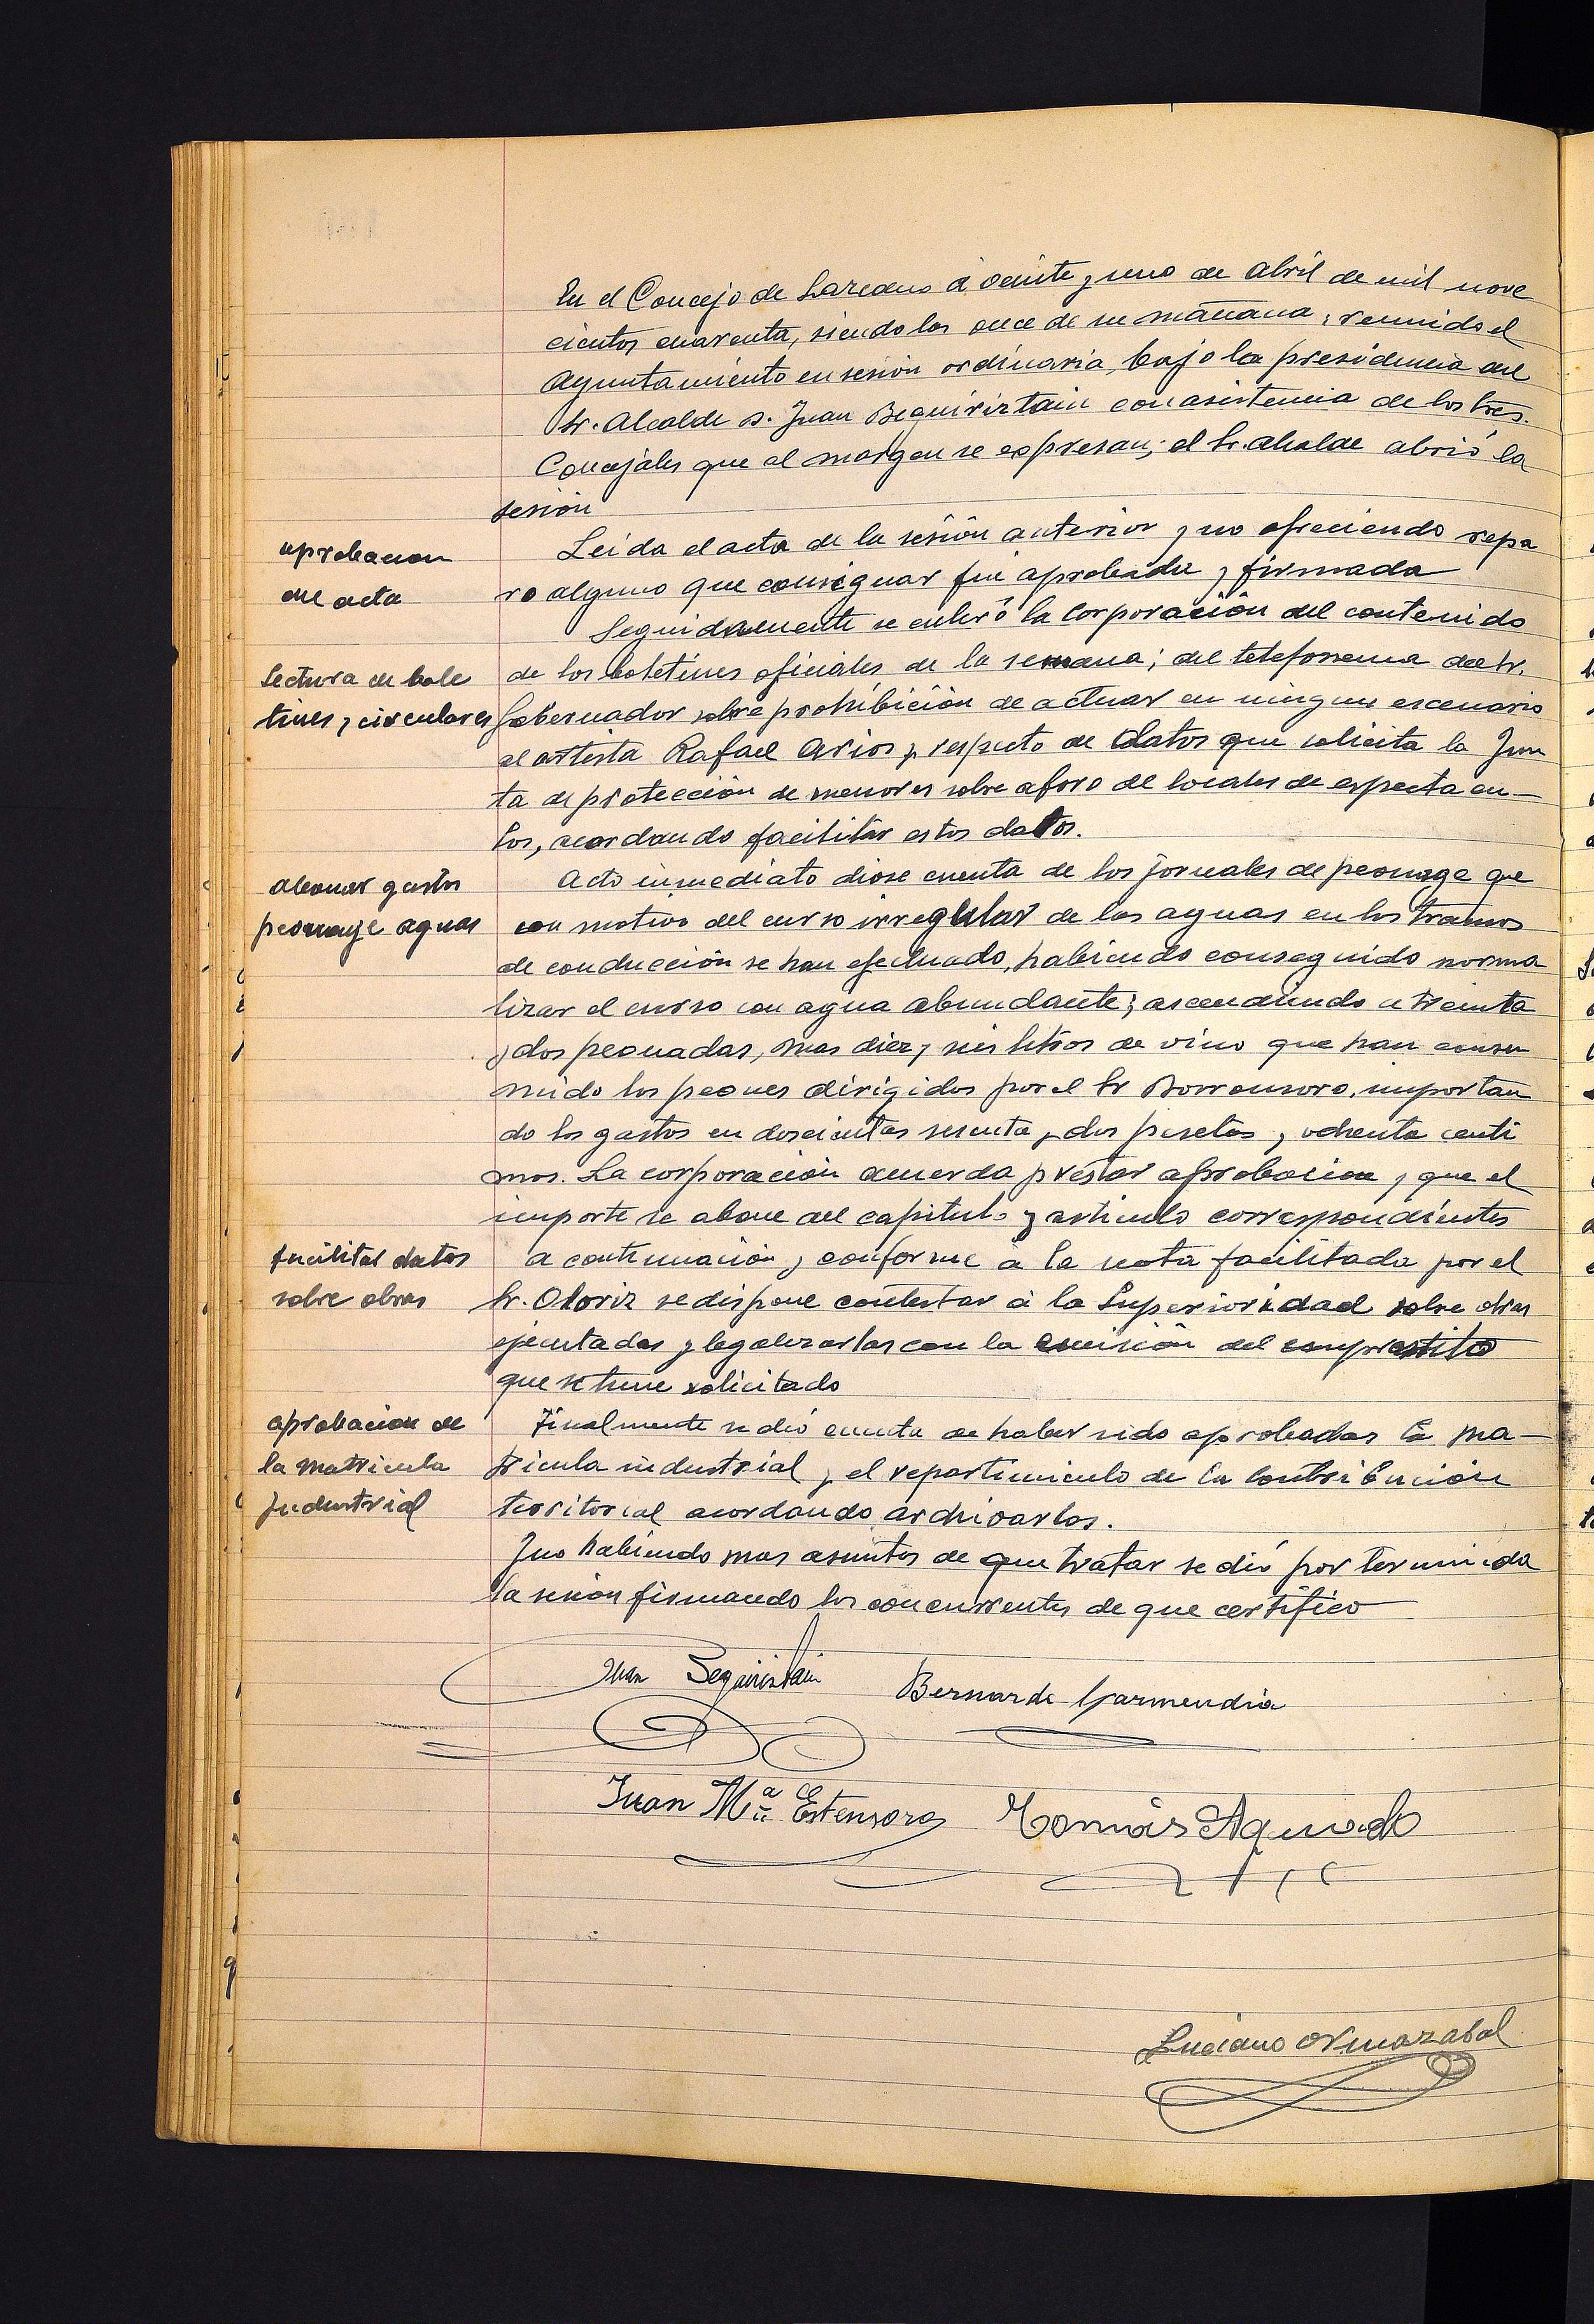 En el Concejo de Lazcano á veinte y uno de Abril de mil nove
cientos cuarenta, siendo las once de su mañana; reunido el
Ayuntamiento en sesión ordinaria, bajo la presidencia del
Sr. Alcalde D. Juan Beguiriztain con asistencia de los Sres.
Concejales que al margen se expresan; el Sr. Alcalde abrió la
sesión
aprobacion
del acta
Leida el acta de la sesión anterior y no ofreciendo repa
ro alguno que consignar fue aprobada y firmada
Seguidamente se enteró la Corporación del contenido
lectura de bole
tines y circulares
de los boletines oficiales de la semana; del telefonema del Sr.
Gobernador sobre prohibición de actuar en ningun escenario
al artista Rafael Arios y respecto de datos que solicita la Jun
ta de protección de menores sobre aforo de locales de espectacu—
los, acordando facilitar estos datos.
abonar gastos
peonaje aguas
Acto inmediato diose cuenta de los jornales de peonage que
con motivo del curso irregular de las aguas en los tramos
de conducción se han efectuado, habiendo conseguido norma
lizar el curso con agua abundante; ascendiendo a treinta
y dos peonadas, mas diez y seis litros de vino que han consu
mido los peones dirigidos por el Sr Borronsoro, importan
do los gastos en doscientas sesenta y dos pesetas y ochenta centi
mos. La corporación acuerda prestar aprobacion y que el
importe se abone del capitulo y articulo correspondientes
facilitar datos
sobre obras
A continuación y conforme á la nota facilitada por el
Sr. Oloriz se dispone contestar á la Superioridad sobre obras
ejecutadas y legalizarlas con la emisión del emprestito
que se tiene solicitado
aprobacion de
la matricula
Industrial
Finalmente se dió cuenta de haber sido aprobadas la ma—
tricula industrial y el repartimiento de la contribución
territorial acordando archivarlos.
Y no habiendo mas asuntos de que tratar se dió por terminada
la sesión firmando los concurrentes de que certifico
Juan Beguiriztain
Bernardo Garmendia
Juan Mª Estensoro
Tomás Aguado
Luciano Ormazabal